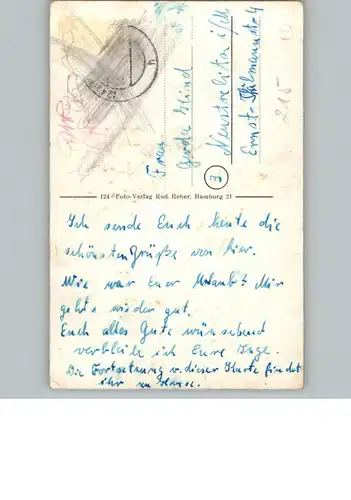 Frau
Gerda
Neustrelitz i/M
Ernst-Thälmannstr. 4
3
215
124 Foto-Verlag Rud. Reher, Hamburg 21
Ich sende Euch heute die
schönsten Grüße von hier.
Wie war Euer Urlaub? Mir
gehts wieder gut.
Euch alles Gute wünschend
verbleibe ich Eure Inge.
Die Fortsetzung v. dieser Karte findet
ihr zu Hause.